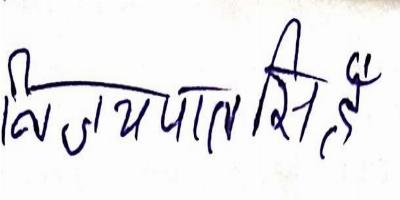 विजयपाल सिंह